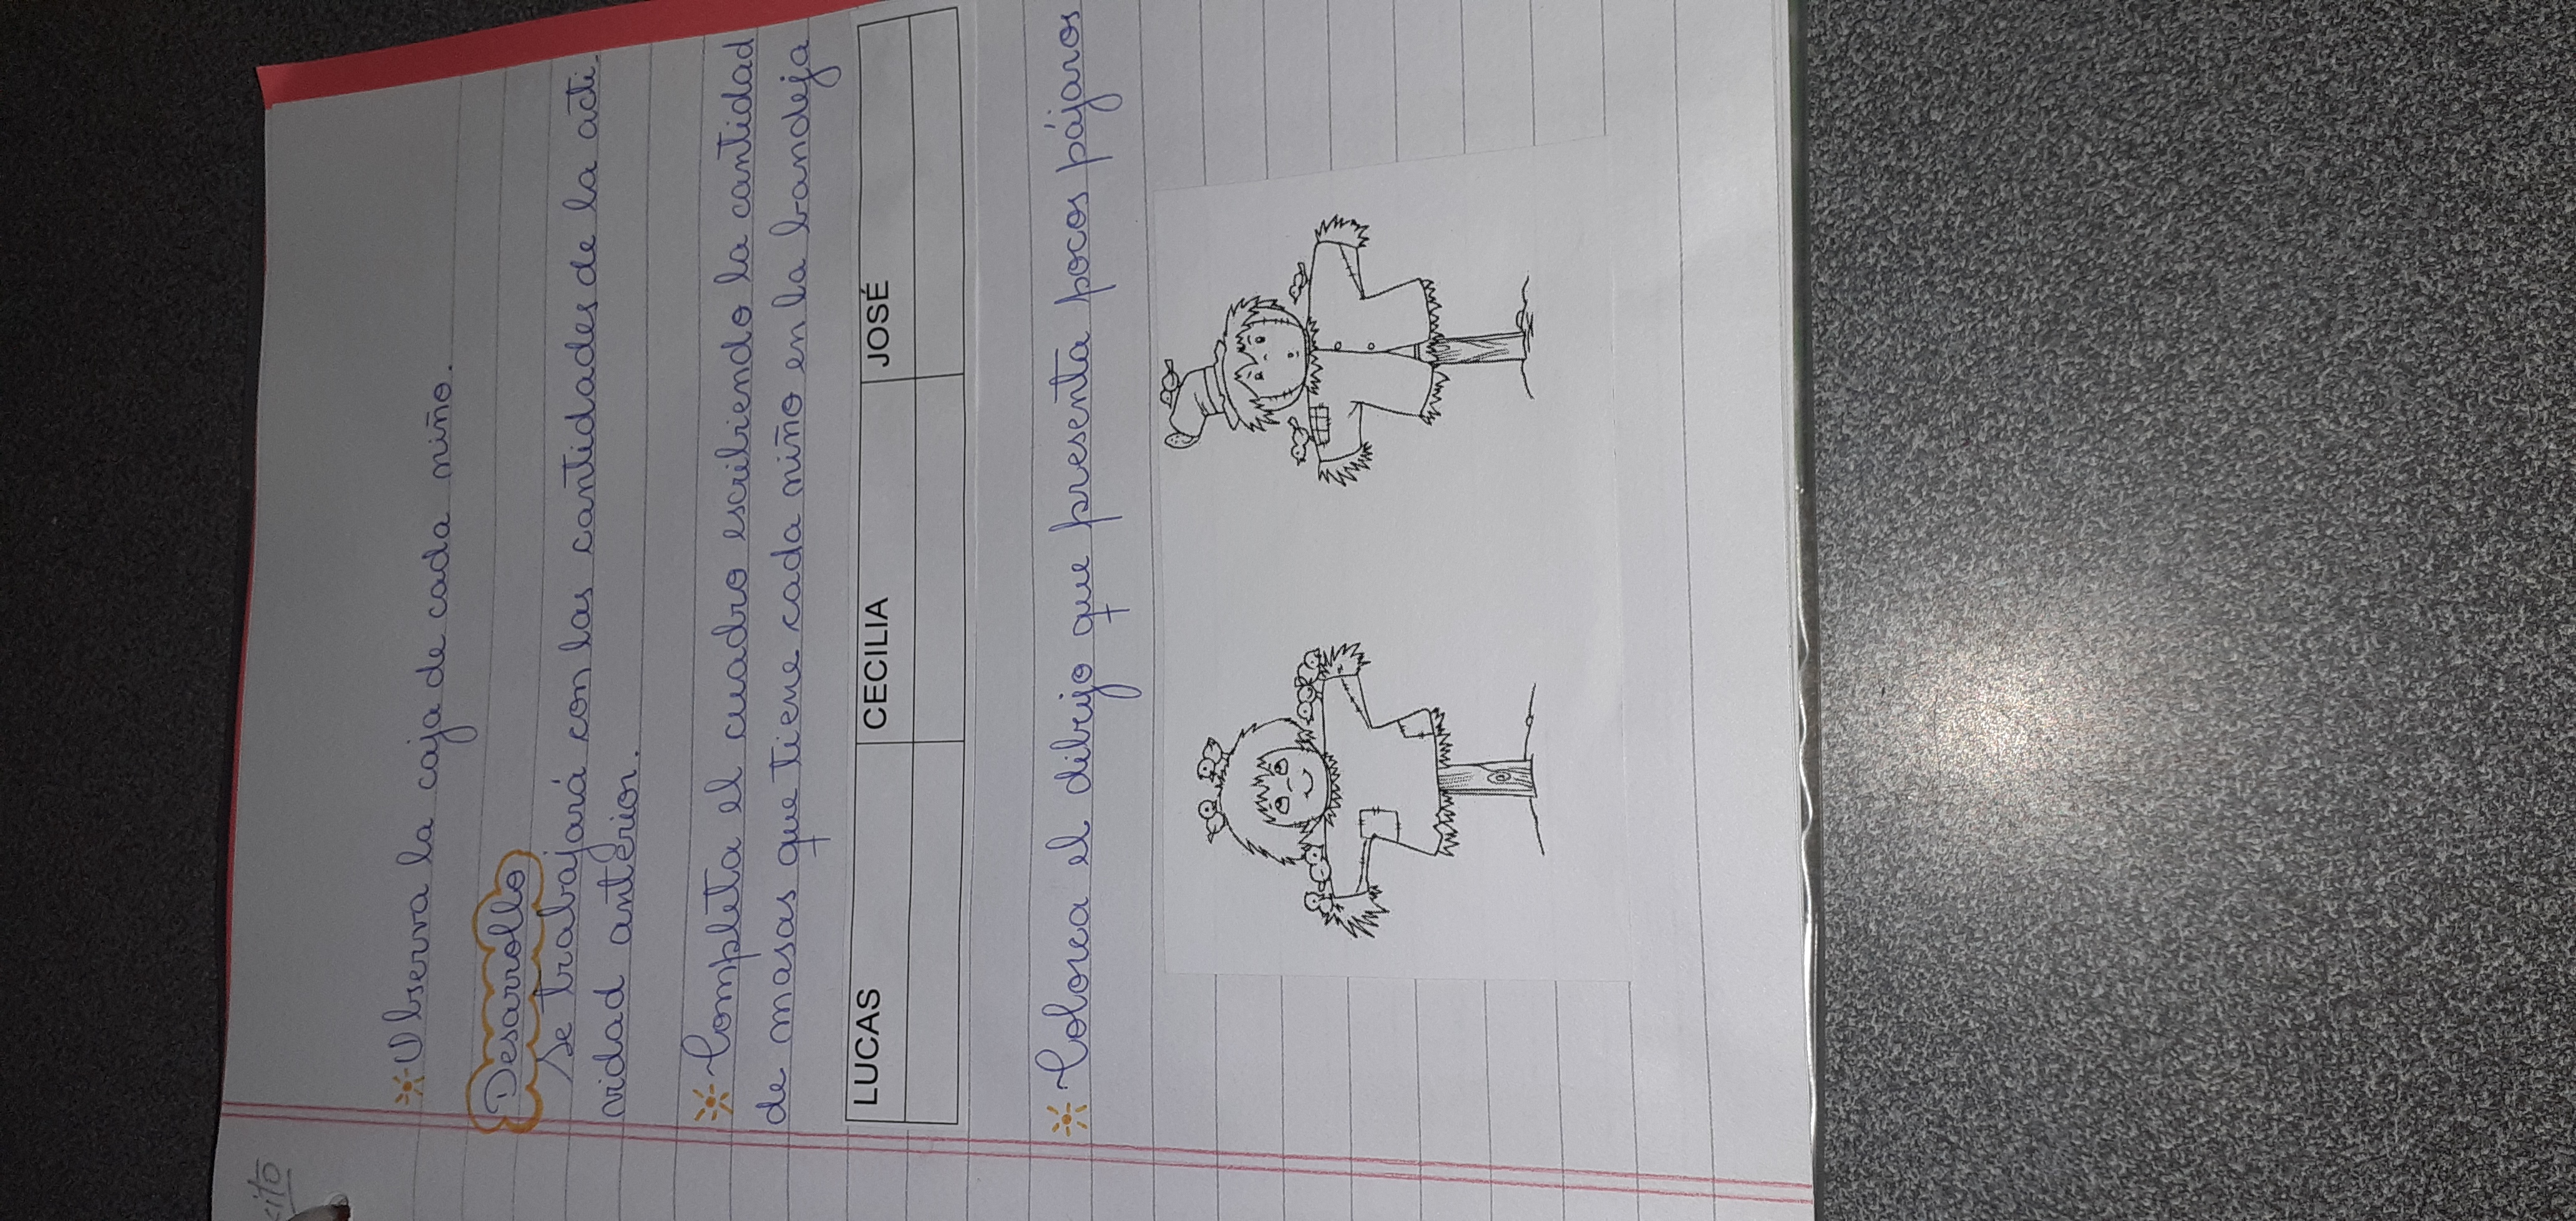 cito
Observa la caja de cada niño.
Desarrollo
Se trabajará con las cantidades de la acti-
vidad anterior.
Completa el cuadro escribiendo la cantidad
de masas que tiene cada niño en la bandeja
LUCAS CECILIA JOSÉ
Colorea el dibujo que presenta pocos pájaros